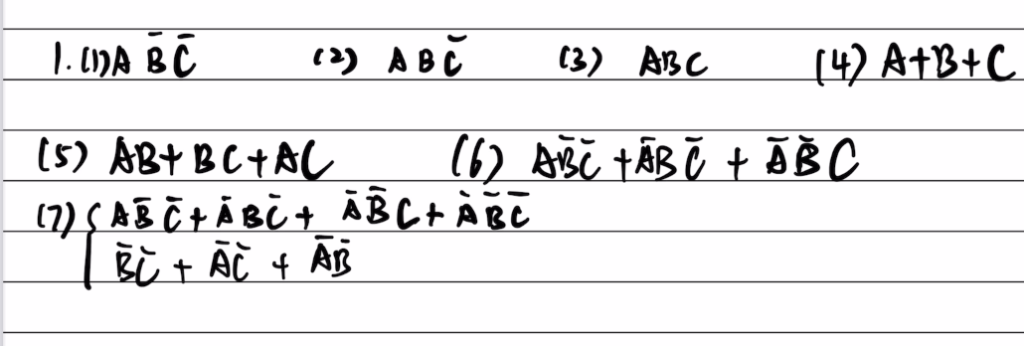 1. (1) A B̄ C̄ (2) A B C̄ (3) ABC (4) A+B+C
(5) AB+BC+AC (6) AB̄C̄ + ĀBC̄ + ĀB̄C
(7) { AB̄C̄ + ĀBC̄ + ĀB̄C + ĀB̄C̄
B̄C̄ + ĀC̄ + ĀB̄